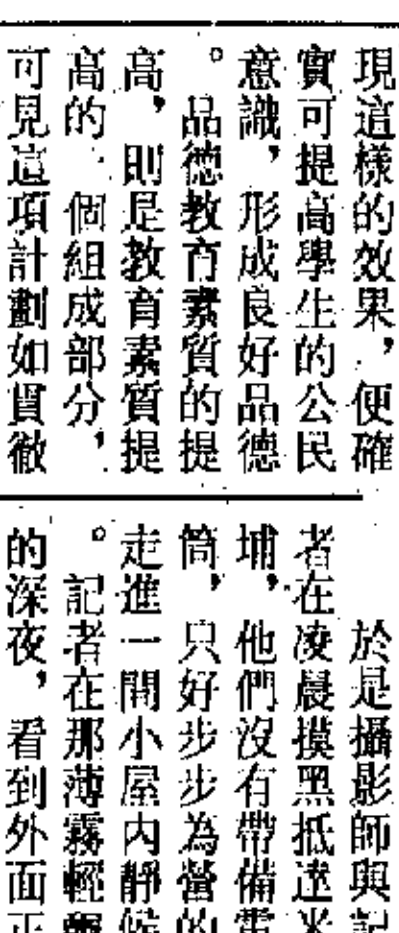 現這樣的效果，便確
實可提高學生的公民
意識，形成良好品德
。品德教育素質的提
高，則是教育素質提
高的一個組成部分，
可見這項計劃如貫徹
於是攝影師與記
者在凌晨摸黑抵達米
埔，他們沒有帶備電
筒，只好步步為營的
走進一間小屋內靜候
。記者在那薄霧輕
的深夜，看到外面正